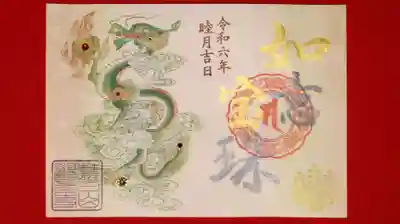 令和六年
睦月吉日
如意宝珠